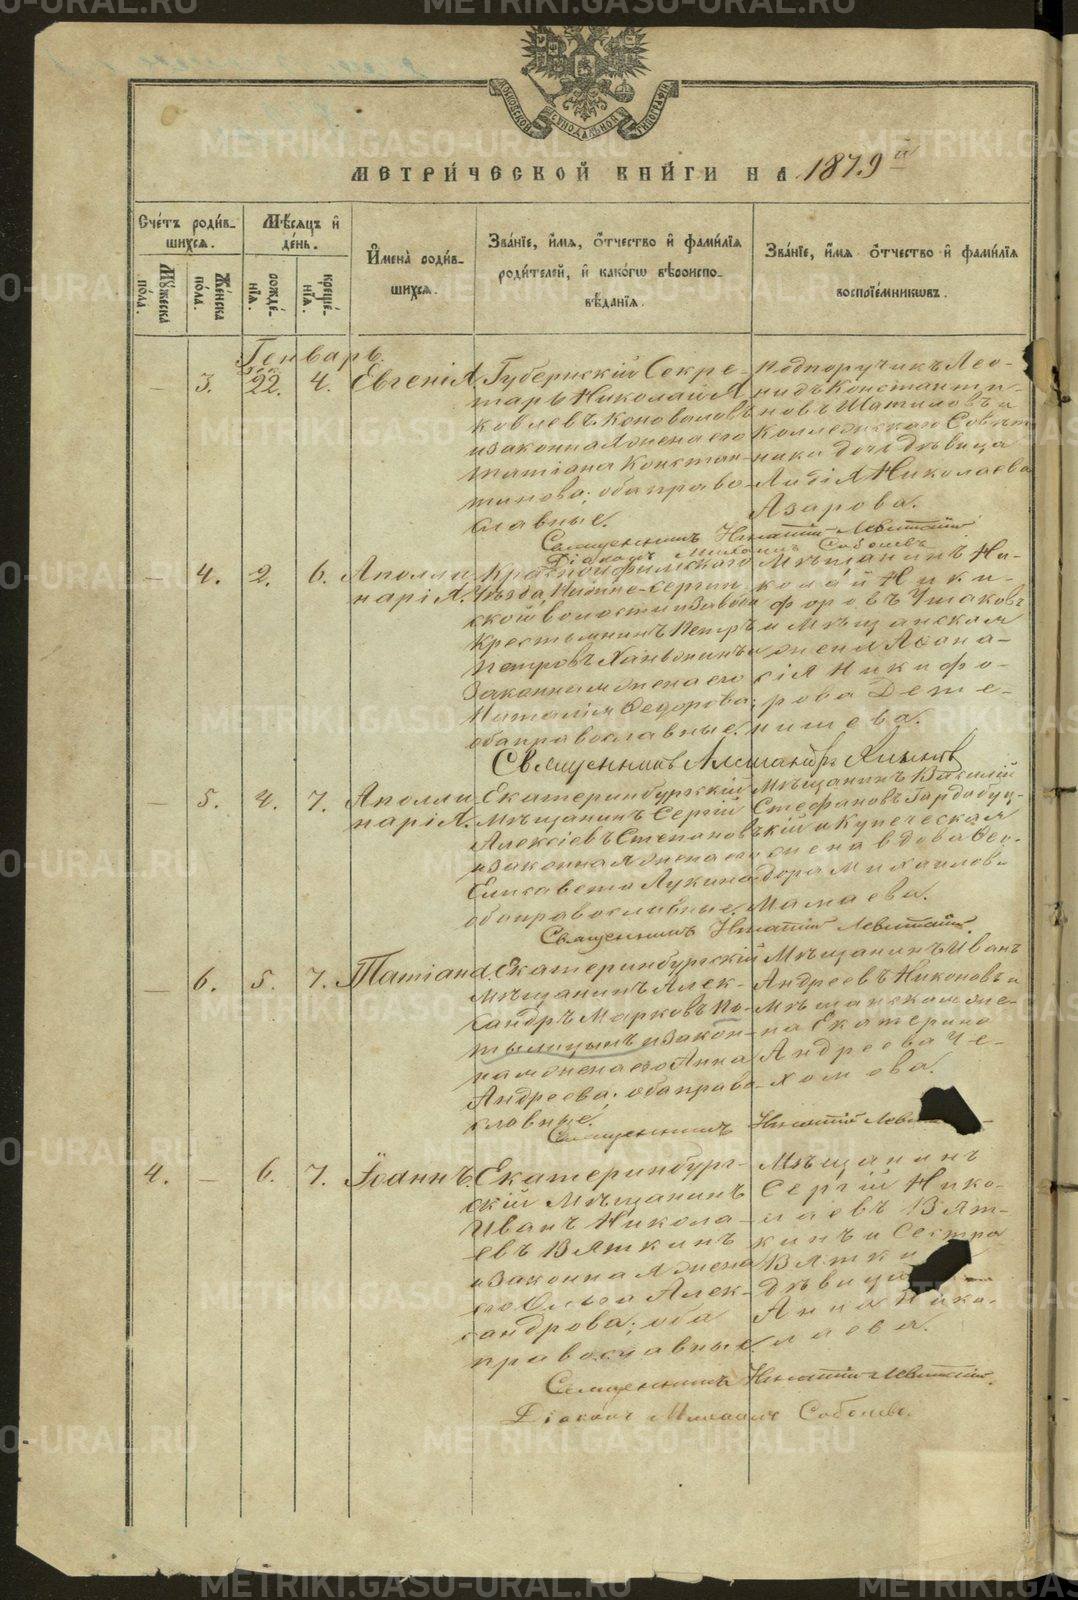 МОСКОВСКОЙ СУНОДАЛЬНОЙ ТИПОГРАФІИ
МЕТРИ́ЧЕСКОЙ КНИ́ГИ НА 1879й
Сче́тъ роди́в-
шихся.
Мѣ́сяцъ и҆
де́нь.
Му́жеска
по́ла.
Же́нска
по́ла.
рожде́-
нїя.
креще́-
нїя.
И҆мена̀ роди́в-
шихся.
Зва́нїе, и҆́мя, ѻ҆́тчество и҆ фами́лїя
роди́телей, и҆ како́гѡ вѣроиспо-
вѣ́данїя.
Зва́нїе, и҆́мя ѻ҆́тчество и҆ фами́лїя
воспрїе́мникѡвъ.
Генварь.
— 3. 22. 4. Евгенія.
Губернскій Секре-
тарь Николай Я-
ковлевъ Коноваловъ
и законная жена его
Татіана Констан-
тинова; оба право-
славные.
Подпоручикъ Лео-
нидъ Константи-
новъ Шатиловъ и
Коллежскаго Совѣт-
ника дочь дѣвица
Лидія Николаева
Азарова.
Священникъ Игнатій Левитскій
Діаконъ Михаилъ Соболевъ
— 4. 2. 6. Аполли-
нарія.
Красноуфимскаго
Уѣзда, Нижне-Сергин-
ской волости и завода
Крестьянинъ Петръ
Петровъ Ханьжинъ и
Законная жена его
Наталія Федорова;
оба православные.
Мѣщанинъ Ни-
колай Ники-
форовъ Ушаковъ
и Мѣщанская
жена Аѳана-
сія Никифо-
рова Дете-
нишева.
Священникъ Александръ
— 5. 4. 7. Аполли-
нарія.
Екатеринбургскій
Мѣщанинъ Сергій
Алексіевъ Степановъ
и законная жена его
Елисавета Лукина
оба православные.
Мѣщанинъ Василій
Стефановъ Гардобуц-
кій и Купеческая
жена вдова Ѳео-
дора Михаилова
Мамаева.
Священникъ Игнатій Левитскій.
— 6. 5. 7. Татіана.
Екатеринбургскій
Мѣщанинъ Алек-
сандръ Марковъ По-
тылицынъ и закон-
ная жена его Анна
Андреева; оба право-
славные.
Мѣщанинъ Иванъ
Андреевъ Никоновъ и
Мѣщанская же-
на Екатерина
Андреева Че-
хомова.
Священникъ Игнатій
4. — 6. 7. Іоаннъ.
Екатеринбург-
скій Мѣщанинъ
Иванъ Никола-
евъ Вяткинъ
и законная жена
его Ольга Алек-
сандрова; оба
православные.
Мѣщанинъ
Сергій Нико-
лаевъ Вят-
кинъ и Сестра
Вятки
дѣвица
Анна Нико-
лаева.
Священникъ Игнатій Левитскій.
Діаконъ Михаилъ Соболевъ.
METRIKI.GASO-URAL.RU